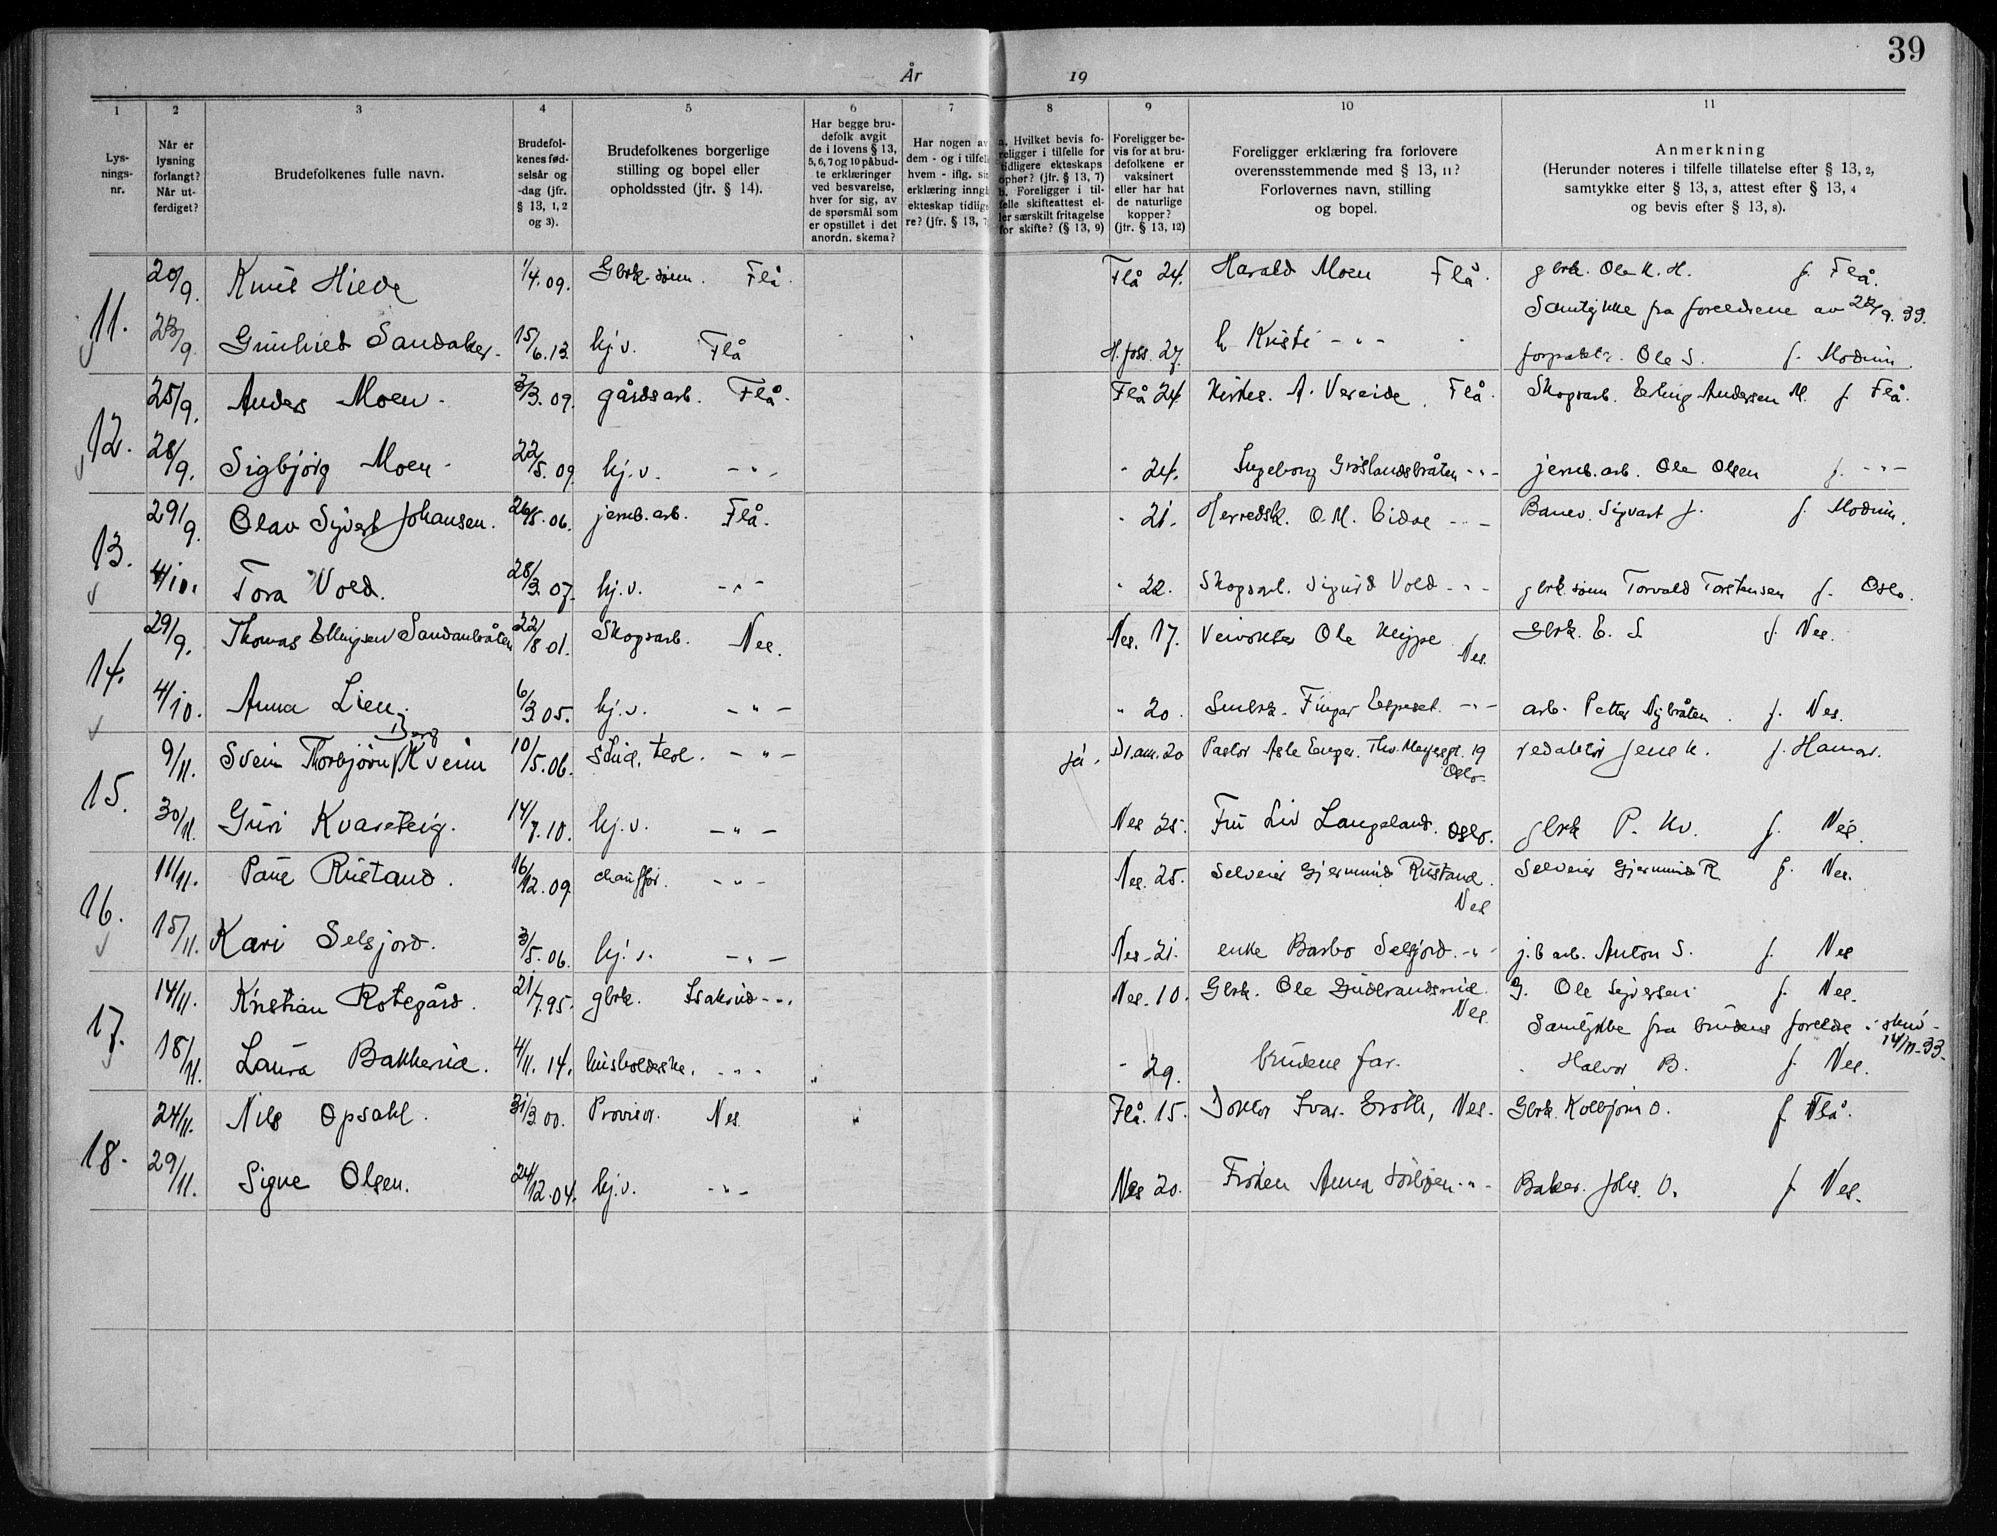 39
År 19
1 2 3 4 5 6 7 8 9 10 11
Lys-
nings-
nr.
Når er
lysning
forlangt?
Når ut-
ferdiget?
Brudefolkenes fulle navn.
Brudefol-
kenes fød-
selsår og
-dag (jfr.
§ 13, 1, 2
og 3).
Brudefolkenes borgerlige
stilling og bopel eller
opholdssted (jfr. § 14).
Har begge bru-
defolk avgit
de i lovens § 13,
5, 6, 7 og 10 påbud-
te erklæringer
ved besvarelse,
hver for sig, av
de spørsmål som
er opstillet i det
anordn. skema?
Har nogen av
dem - og i tilfel
hvem - iflg. si
erklæring inngå
ekteskap tidlige
re? (jfr. § 13, 7
a. Hvilket bevis fo-
religger i tilfelle for
tidligere ekteskaps
ophør? (jfr. § 13, 7)
b. Foreligger i til-
felle skifteattest el-
ler særskilt fritagelse
for skifte? (§ 13, 9)
Foreligger be-
vis for at bru-
defolkene er
vaksinert
eller har hat
de naturlige
kopper?
(jfr. § 13, 12)
Foreligger erklæring fra forlovere
overensstemmende med § 13, 11?
Forlovernes navn, stilling
og bopel.
Anmerkning
(Herunder noteres i tilfelle tillatelse efter § 13, 2,
samtykke efter § 13, 3, attest efter § 13, 4
og bevis efter § 13, 8).
11. 20/9. Knut Hiede 1/4.09. Gbrk. sønn. Flå. Flå 24. Harald Moen Flå. gbrk. Ole K. H. f. Flå.
Samtykke fra foreldrene av 22/9.33.
23/9. Gunhild Sandaker. 15/6.13. hj.v. Flå H.foss. 27. Kristi - " - forpakt. Ole S. f. Modum.
12. 25/9. Anders Moen. 3/3.09. gårdsarb. Flå. Flå 24. Kirkes. A. Vereide. Flå. Skogsarb. Erling Andersen M. f. Flå.
28/9. Sigbjörg Moen. 22/5.09. hj.v. - " - - 24. Ingeborg Gröslandsbråten - " - jernb.arb. Ole Olsen f. - " -
13. 29/9. Olav Syvert Johansen. 26/5.06. jernb.arb. Flå. " 21. Herredsk. O.M. Eidal - " - Banev. Sigvart J. f. Modum.
4/10. Tora Vold. 28/3.07. hj.v. - " - " 22. Skogsarb. Sigurd Vold - " - gbrk.sønn Torvald Torstensen f. Oslo.
14. 29/9. Thomas Ellingsen Sandanbråten 22/8 01. Skogsarb. Nes. Nes. 17. Veivokter Ole Kleppe Nes. Gbrk. E. S. f. Nes.
4/10. Anna Lien. 6/3.05. hj.v. - " - " 20. Smbrk. Fingar Espeset. - " - arb. Petter Nybråten. f. Nes.
Berg
15. 9/11. Svein Thorbjörn Kveim 10/5.06. stud. teol. - " - ja. Dr.am. 20 Pastor Asle Enger. Thv. Meyersgt. 19 Oslo. redaktör Jens K. f. Hamar.
30/11. Guri Kvarsteig. 14/7.10. hj.v. - " - Nes 25. Fru Liv Langeland. Oslo. gbrk P. Kv. f. Nes.
16. 11/11. Paul Rustand. 16/12.09. chauffør. - " - Nes. 25. Selveier Gjermund Rustand. Nes Selveier Gjermund R. f. Nes.
15/11. Kari Selsjord. 3/5.06. hj.v. - " - Nes. 21. enke Barbo Selsjord. - " - j.b arb. Anton S. f. Nes
17. 14/11. Kristian Rotegård. 21/7.95. gbrk. Isakrud - " - Nes. 10. Gbrk. Ole Gudbrandsrud. Nes. G. Ole Syversen f. Nes.
Samtykke fra brudens foreldre 14/11-33.
18/11. Laura Bakkerud. 4/11.14. husholderske. - " - - 29. brudens far. Halvor B. f. Nes.
18. 24/11. Nils Opsahl. 31/3.00. Provisor. Nes. Flå. 15. Doktor Ivar Groth, Nes. Gbrk. Kolbjörn O. f Flå.
29/11. Signe Olsen. 24/12.04. hj.v. - " - Nes 20. Fröken Anna - " - Baker. Johs. O. f. Nes.